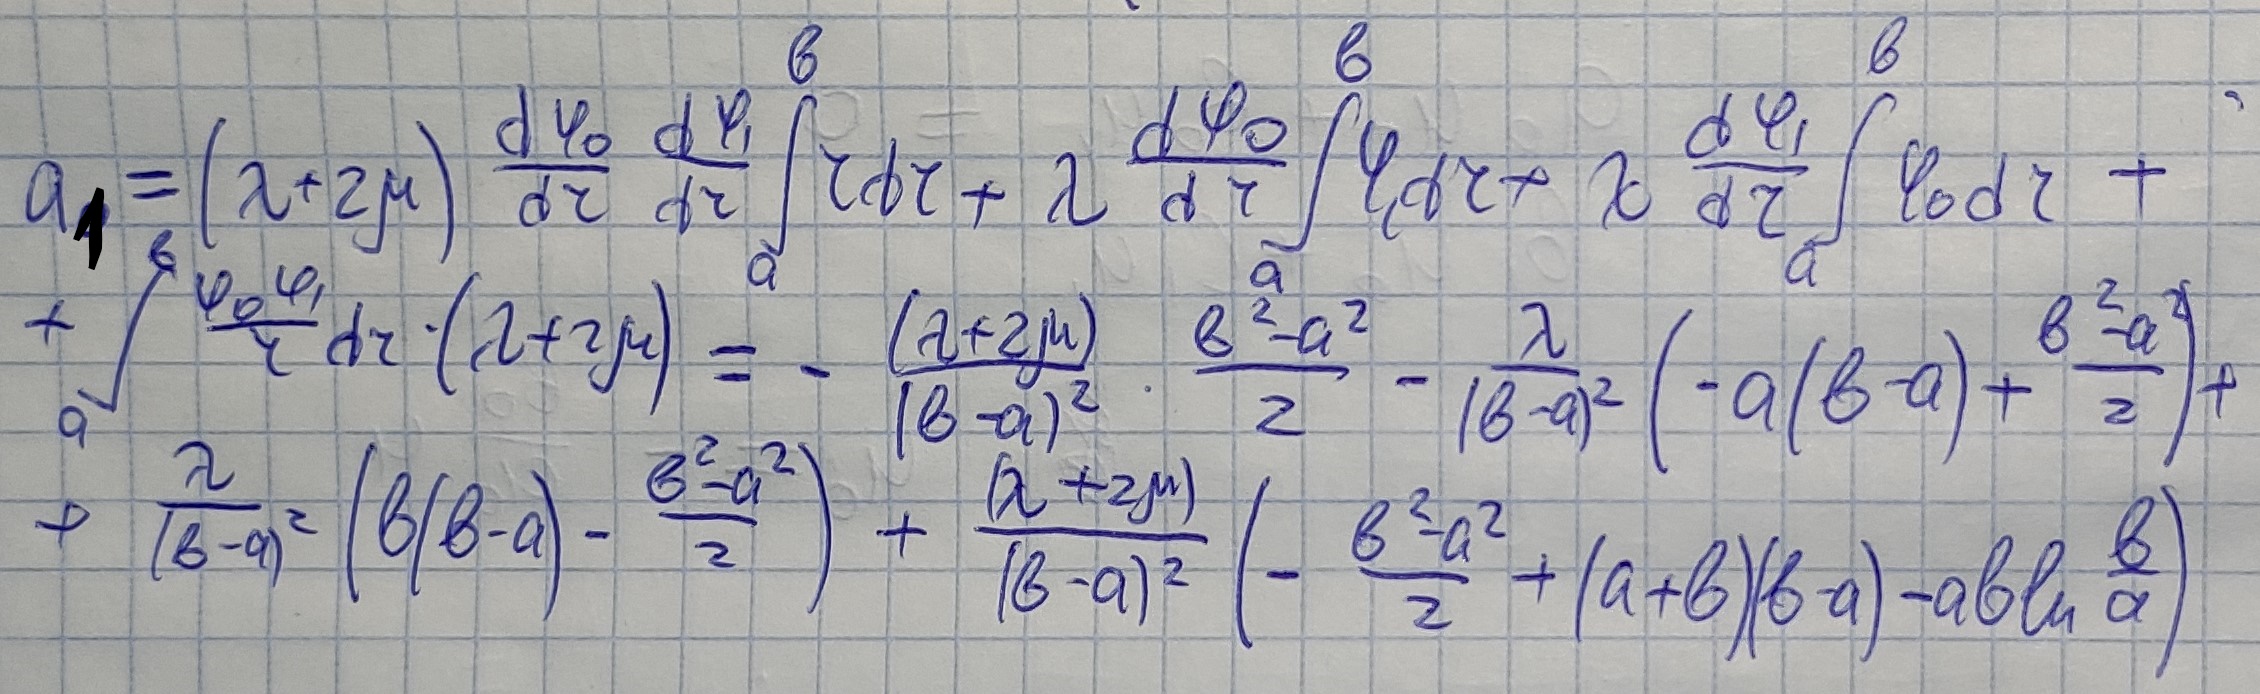 a₁ = (λ+2μ) dφ₀/dr dφ₁/dr ∫ₐᵇ r dr + λ dφ₀/dr ∫ₐᵇ φ₁ dr + λ dφ₁/dr ∫ₐᵇ φ₀ dr +
+ ∫ₐᵇ φ₀φ₁/r dr · (λ+2μ) = - (λ+2μ)/(b-a)² · (b²-a²)/2 - λ/(b-a)² (-a(b-a) + (b²-a²)/2) +
+ λ/(b-a)² (b(b-a) - (b²-a²)/2) + (λ+2μ)/(b-a)² (- (b²-a²)/2 + (a+b)(b-a) - ab ln b/a)